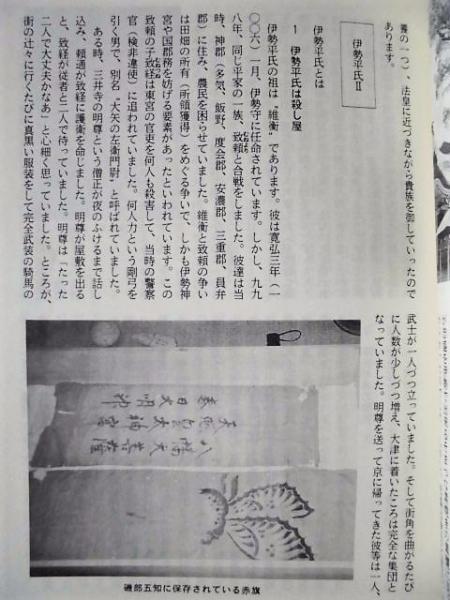 の一つ)、法皇に近づきながら貴族を御していったので
あります。
伊勢平氏Ⅱ
伊勢平氏とは
1 伊勢平氏は殺し屋
伊勢平氏の祖は"維衡"であります。彼は寛弘三年(一
〇〇六)一月、伊勢守に任命されています。しかし、九九
八年、同じ平家の一族、致頼と合戦をしました。彼達は当
時、神郡(多気、飯野、度会郡、安濃郡、三重郡、員弁
郡)に住み、農民を困らせていました。維衡と致頼の争い
は田畑の所有(所領獲得)をめぐる争いで、しかも伊勢神
宮や国郡務を妨げる要素があったといわれています。この
致頼の子致経は東宮の官吏を何人も殺害して、当時の警察
官(検非違使)に追われていました。何人力という剛弓を
引く男で、別名「大矢の左衛門尉」と呼ばれていました。
ある時、三井寺の明尊という僧正が夜のふけるまで話し
込み、頼通が致経に護衛を命じました。明尊が屋敷を出る
と、致経が従者と二人で待っていました。明尊は「たった
二人で大丈夫かなあ」と心細く思っていました。ところが、
街の辻々に行くたびに真黒い服装をして完全武装の騎馬の
武士が一人づつ立っていました。そして街角を曲がるたび
に人数が少しづつ増え、大津に着いたころは完全な集団と
なっていました。明尊を送って京に帰ってきた彼等は一人、
春日大明神
天照皇大神宮
八幡大菩薩
磯部五知に保存されている赤旗